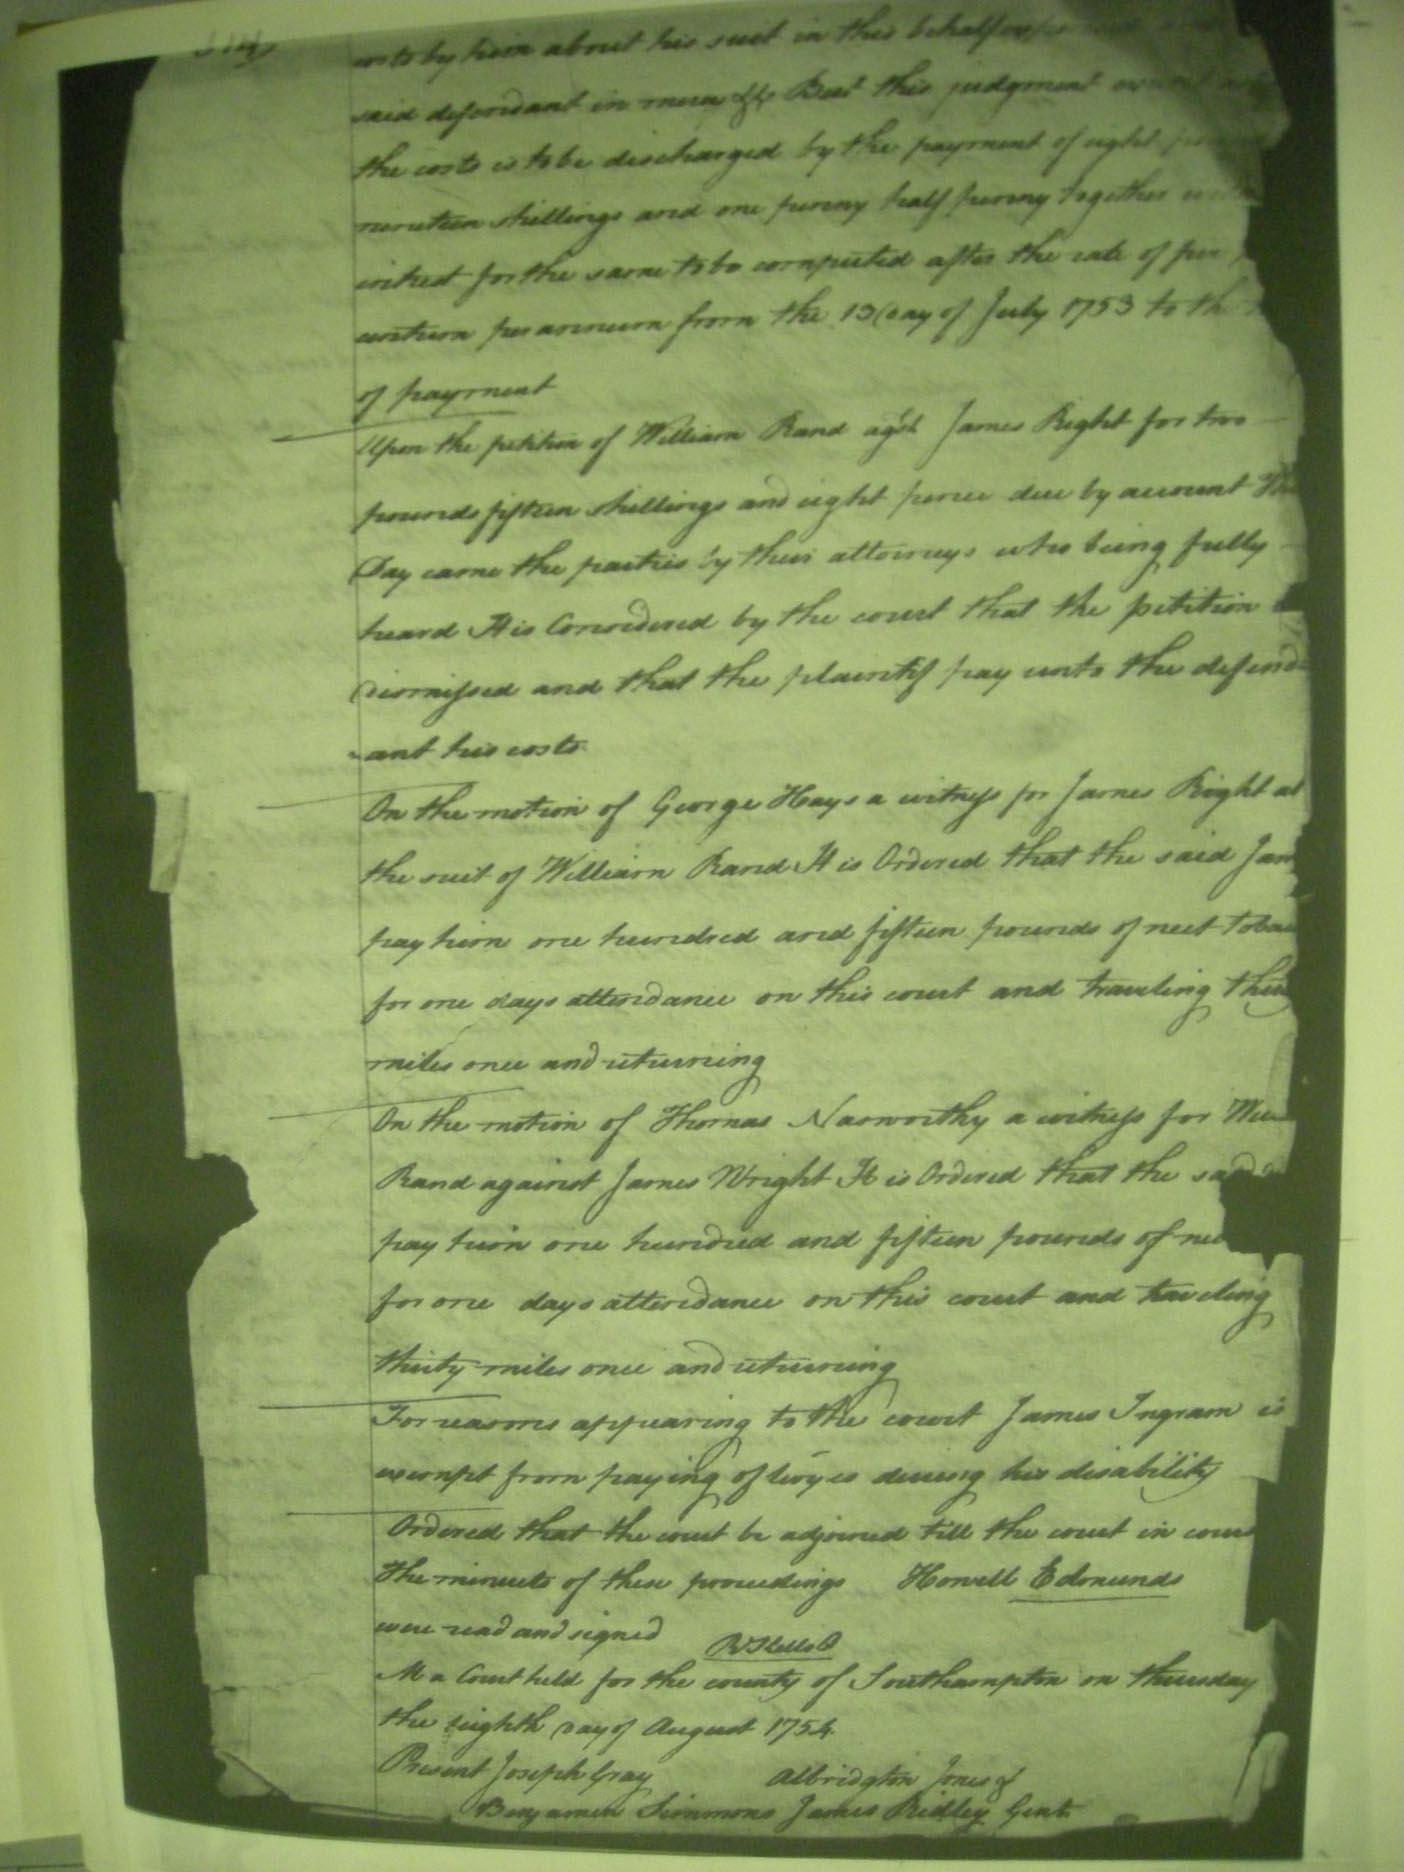 costs by him about his suit in this behalf
said defendant in mercy &c But this judgment
the costs is to be discharged by the payment of eight
nineteen shillings and one penny half penny together
intrest for the same to be computed after the rate of five
centum per annum from the 13 Day of July 1753 to the
of payment
Upon the petition of William Rand agst James Right for two
pounds fifteen shillings and eight pence due by account
Day came the parties by their attorneys who being fully
heard It is Considered by the court that the petition
dismissed and that the plaintif pay unto the defend
ant his costs
On the motion of George Hays a witness for James Right at
the suit of William Rand It is Ordered that the said Jam
pay him one hundred and fifteen pounds of neet Tobac
for one days attendance on this court and traveling thir
miles once and returning
On the motion of Thomas Nasworthy a witness for
Rand against James Wright It is Ordered that the said
pay him one hundred and fifteen pounds of
for one days attendance on this court and traveling
thirty miles once and returning
For reasons appearing to the court James Ingram is
exempt from paying of levyes during his disability
Ordered that the court be adjorned till the court in cours
The minuets of these proceedings Howell Edmunds
were read and signed
At a Court held for the county of Southampton on thursday
the eighth day of August 1754
Present Joseph Gray Albridgton Jones &
Benjamin Simmons James Ridley Gent